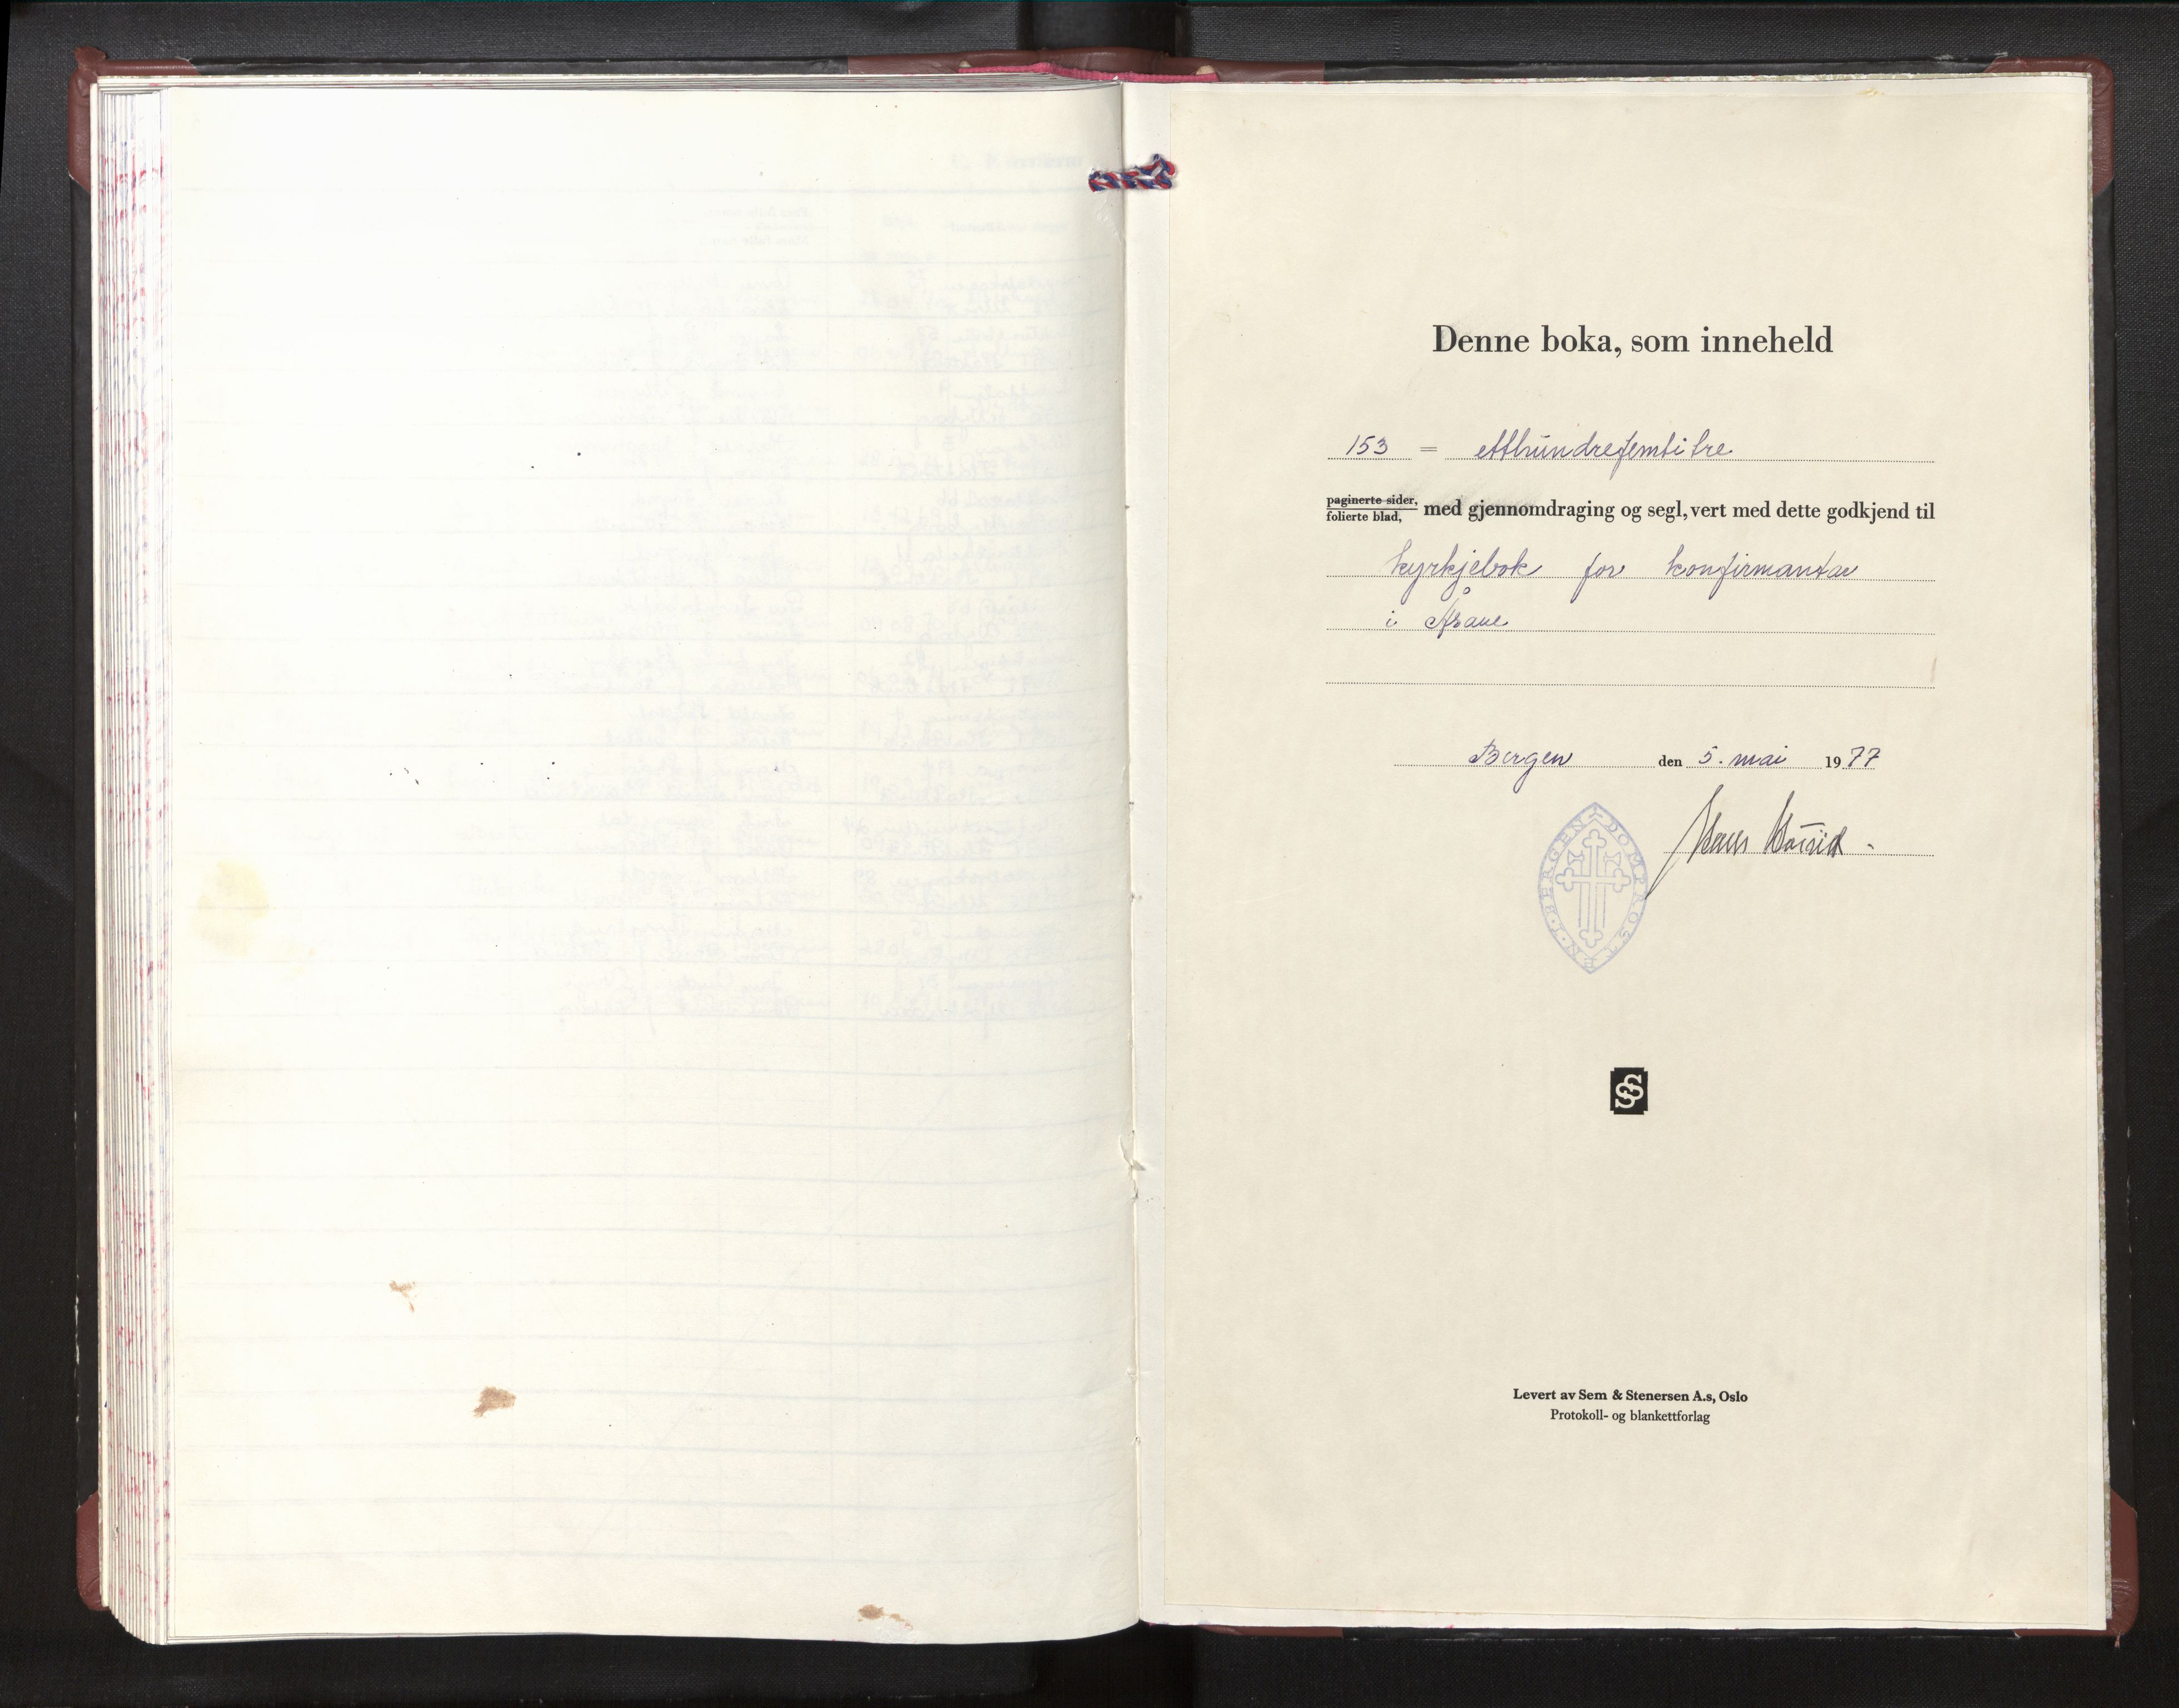 Denne boka, som inneheld
153 = etthundrefemtitre
paginerte sider,
folierte blad, med gjennomdraging og segl, vert med dette godkjend til
kyrkjebok for konfirmantar
i Åsane
Bergen den 5. mai 1977
DOMPROSTEN I BERGEN
SS
Levert av Sem & Stenersen A.s, Oslo
Protokoll- og blankettforlag